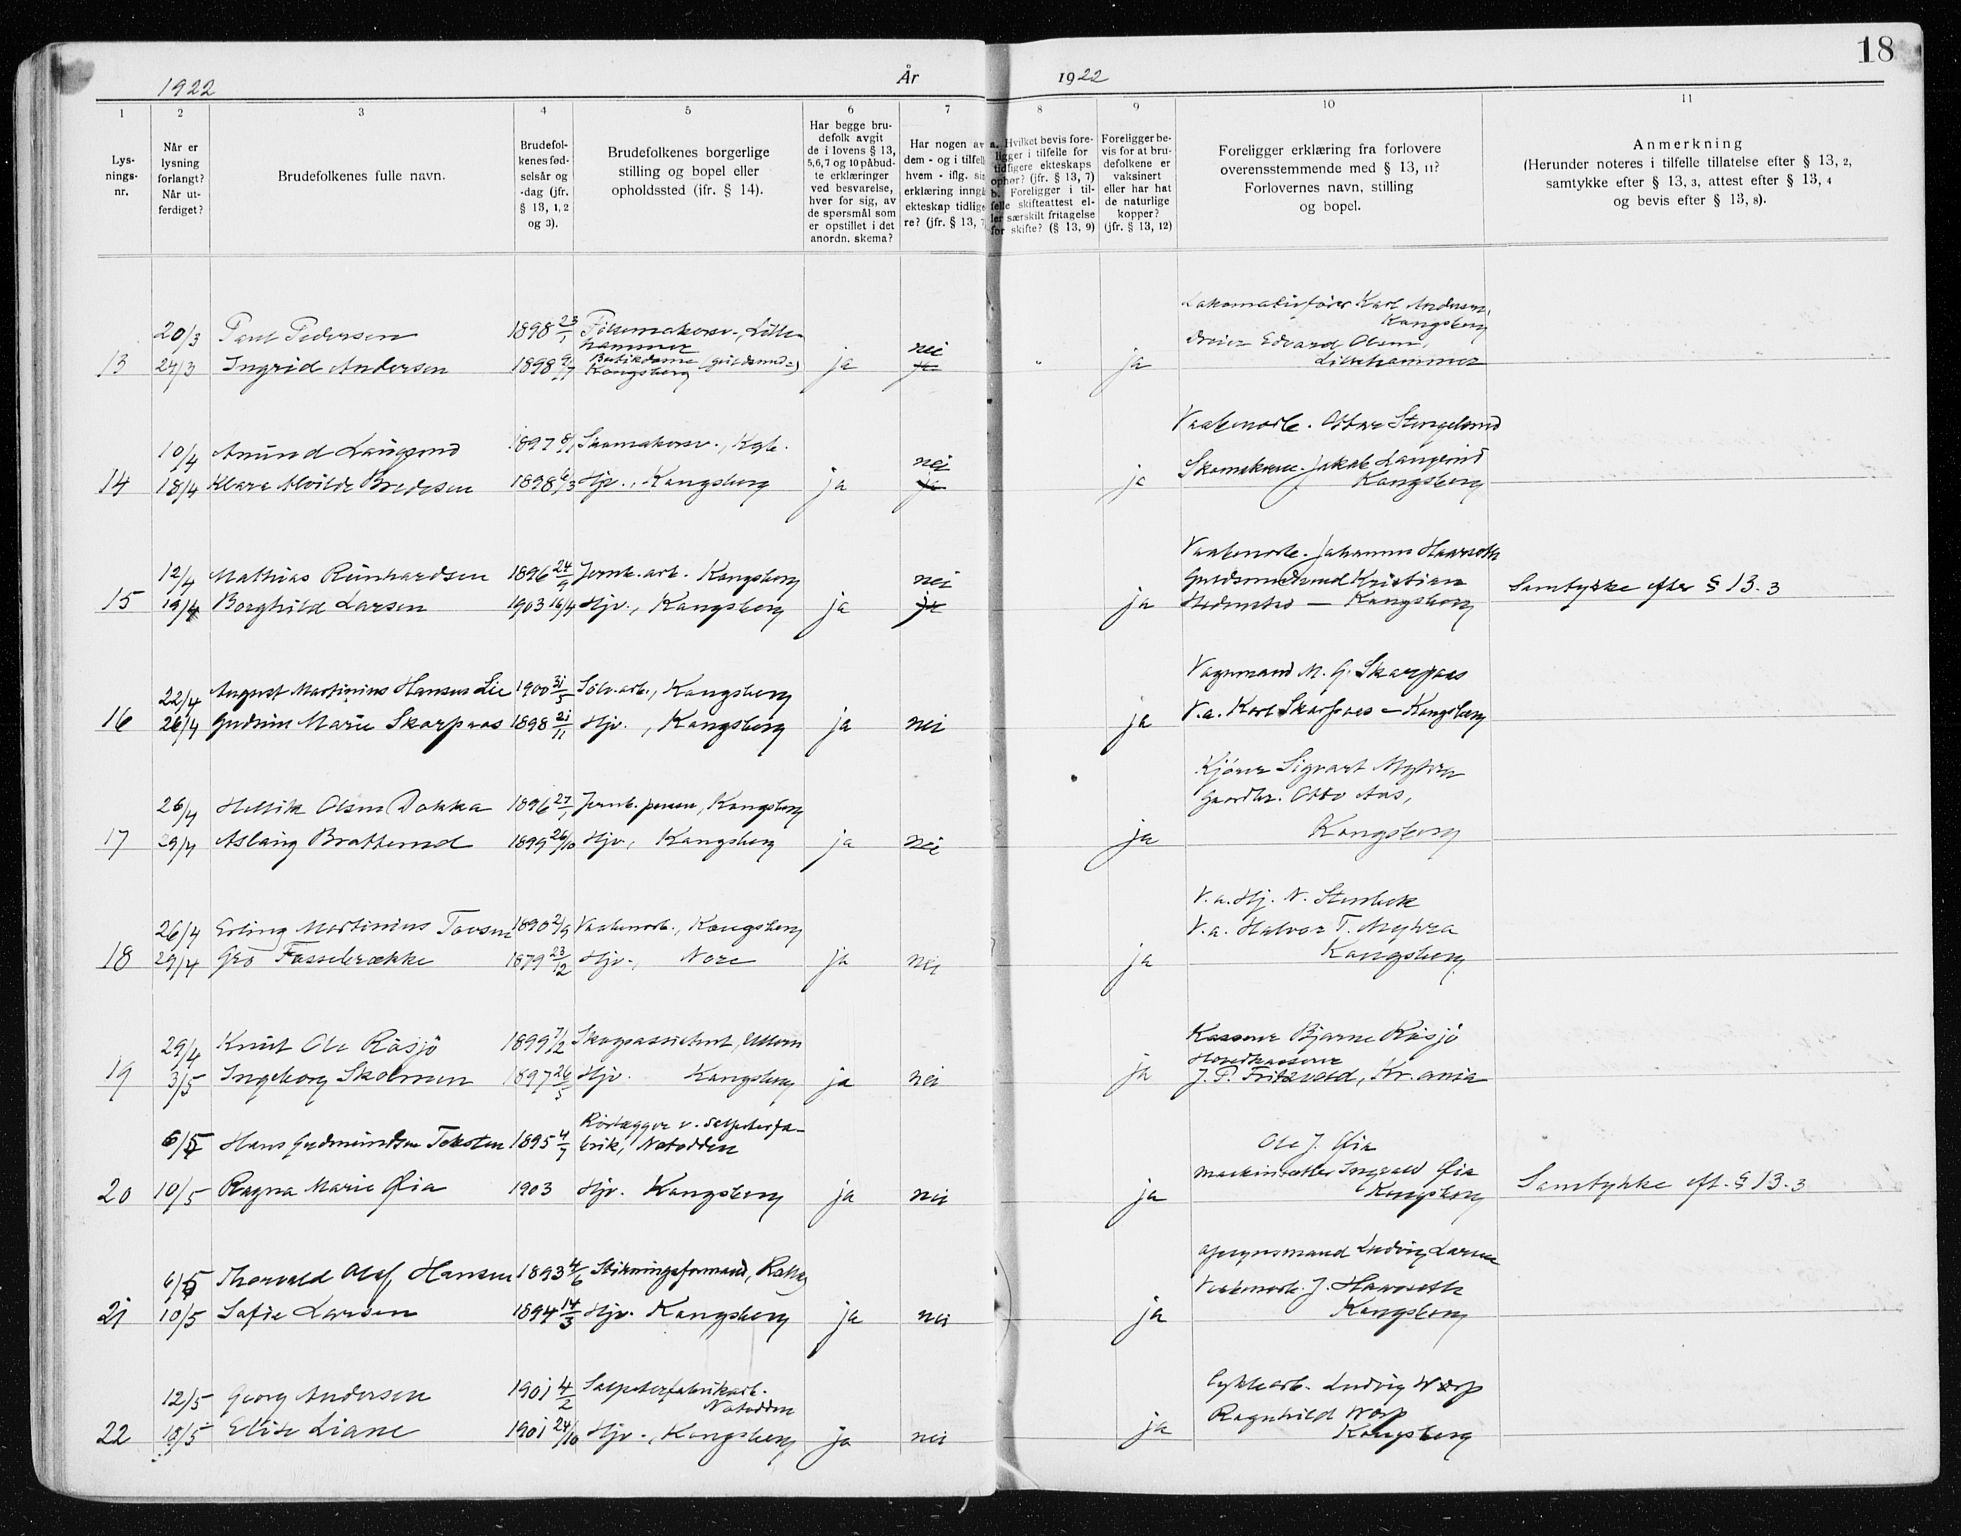 18
1922 År 1922
1 2 3 4 5 6 7 8 9 10 11
Lysningsnr.
Når er lysning forlangt? Når utferdiget?
Brudefolkenes fulle navn.
Brudefolkenes fødselsår og -dag (jfr. § 13, 1, 2 og 3).
Brudefolkenes borgerlige stilling og bopel eller opholdssted (jfr. § 14).
Har begge brudefolk avgit de i lovens § 13, 5,6,7 og 10 påbudte erklæringer ved besvarelse, hver for sig, av de spørsmål som er opstillet i det anordn. skema?
Har nogen av dem - og i tilfelle hvem - iflg. sin erklæring inngått ekteskap tidligere? (jfr. § 13, 7
a. Hvilket bevis foreligger i tilfelle for tidligere ekteskaps ophør? (jfr. § 13, 7)
b. Foreligger i tilfelle skifteattest eller særskilt fritagelse for skifte? (§ 13, 9)
Foreligger bevis for at brudefolkene er vaksinert eller har hat de naturlige kopper? (jfr. § 13, 12)
Foreligger erklæring fra forlovere overensstemmende med § 13, 11? Forlovernes navn, stilling og bopel.
Anmerkning
(Herunder noteres i tilfelle tillatelse efter § 13, 2, samtykke efter § 13, 3, attest efter § 13, 4 og bevis efter § 13, 8).
Lokomotivfører Karl Andersen,
Kongsberg
20/3 Paul Pedersen 1898 23/1 Lille-
hammer
Dreier Edvard Olsen,
13 24/3 Ingrid Andersen 1898 Butikdame Kongsberg ja nei ja " ja Lillehammer
Vaabenarb. Ottar Stengelsrud
10/4 Anund Laugerud 1897 8/1 Skomakersv., Kgb.
Skomakersv. Jakob Laugerud
14 18/4 Klara Alvilde Bredesen 1898 6/3 Hjv., Kongsberg ja nei ja ja Kongsberg
Vaabenarb. Johannes Haavseth
12/4 Mathias Reinhardsen 1896 24/9 Jernb.arb. Kongsberg
Kristian
15 19/4 Borghild Larsen 1903 16/4 Hjv., Kongsberg ja nei ja ja Hedenstad — Kongsberg Samtykke efter § 13.3
M. G. Skarpaas
22/4 August Martinius Hansen Lie 1900 31/5 Sølv.arb., Kongsberg
16 26/4 Gudrun Marie Skarpaas 1898 21/11 Hjv., Kongsberg ja nei ja V.a. Karl Skarpaas — Kongsberg
Kjører Sigvart Myhra
26/4 Hellik Olsen Dokka 1896 27/1 Jernb. Kongsberg
Gaardbr. Otto Aas,
17 29/4 Aslaug Bratterud 1899 26/10 Hjv., Kongsberg ja nei ja Kongsberg
V.a. Hj. N. Stenbek
26/4 Erling Martinius Tovsen 1890 2/9 Vaabenarb., Kongsberg
V.a. Halvor T. Myhra
18 29/4 Gro Fossebrække 1879 23/12 Hjv., Nore ja nei ja Kongsberg
29/4 Knut Ole Råsjö 1899 7/12 Skogassistent,
Kasserer Bjarne Råsjö
Hovedkasserer
19 3/5 Ingeborg Skolmen 1897 26/5 Hjv. Kongsberg ja nei ja J. P. Fritzvold, Kr.ania
Rørlægger v. Salpeterfa-
6/5 Hans Gudmundsen Teksten 1895 4/7 brik, Notodden
Ole J. Øia
Maskinsætter Ingvald Øia
20 10/5 Ragna Marie Øia 1903 Hjv. Kongsberg ja nei ja Kongsberg Samtykke eft. § 13.3
Opsynsmand Ludvig Larsen
6/5 Thorvald Olaf Hansen 1893 4/6
Vaabenarb. J. Haavseth
21 10/5 Sofie Larsen 1894 14/3 Hjv. Kongsberg ja nei ja Kongsberg
12/5 Georg Andersen 1901 4/2 Salpeterfabrikarb.
Notodden
Ludvig Warp
Ragnhild Warp
22 18/5 Elise Liane 1901 24/10 Hjv., Kongsberg ja nei ja Kongsberg